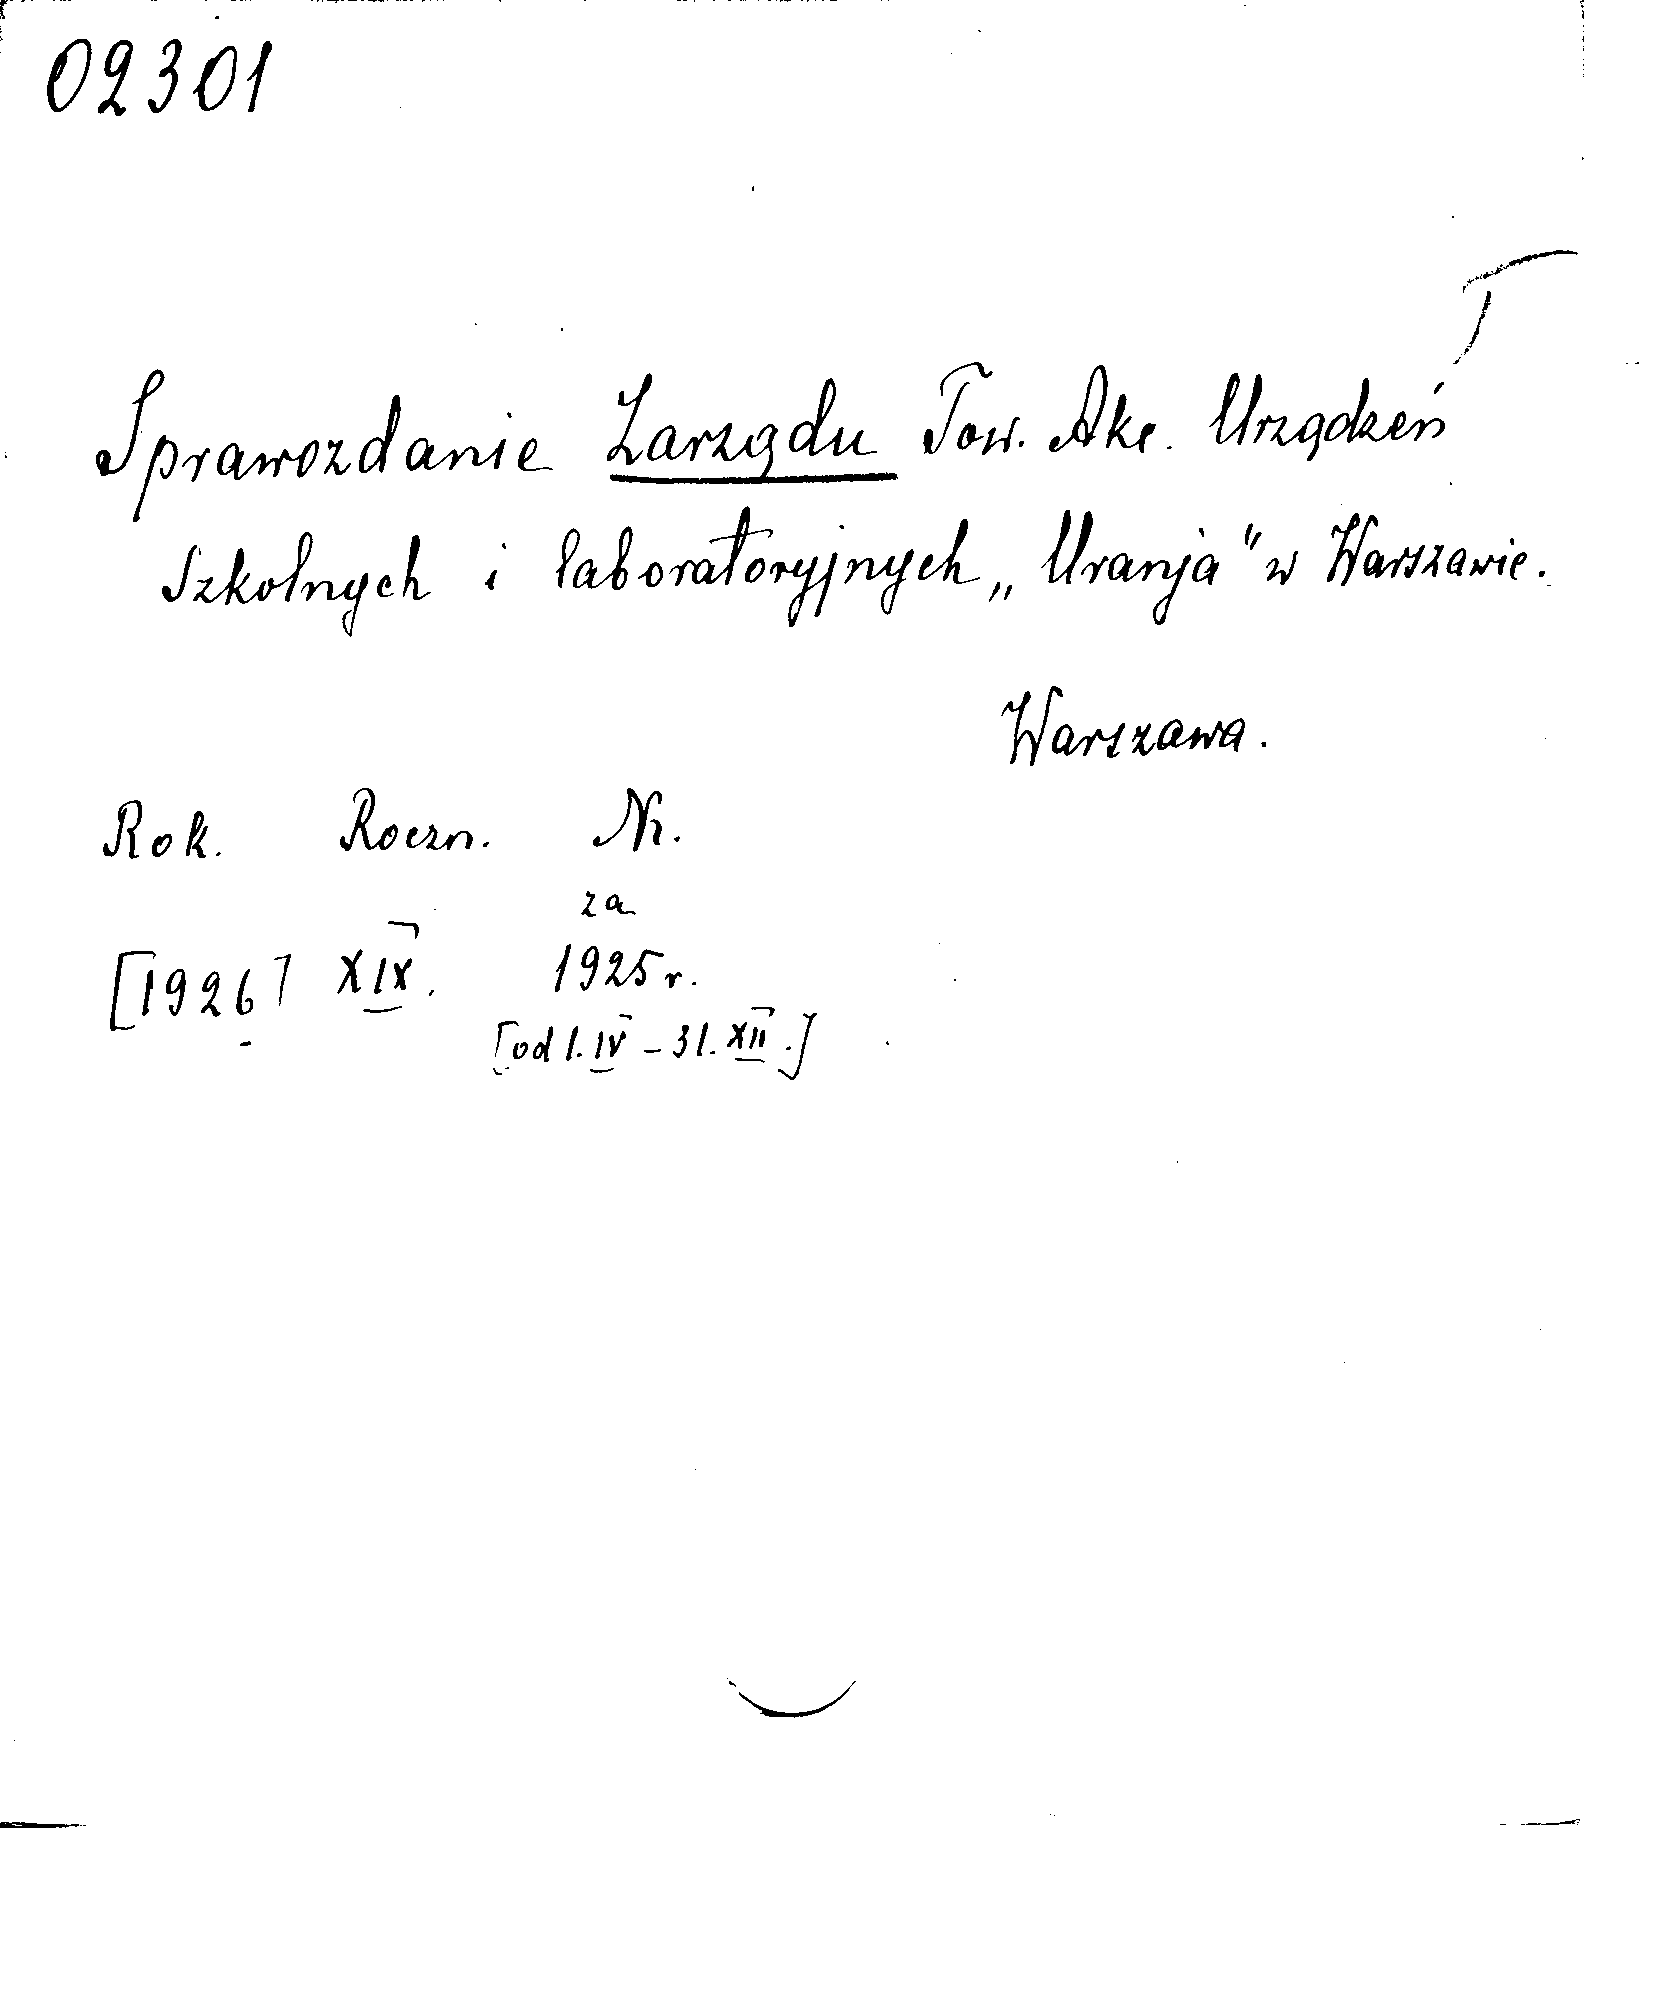 02301
Sprawozdanie Zarządu Tow. Akc. Urządzeń
szkolnych i laboratoryjnych „Uranja" w Warszawie.
Warszawa.
Rok. Roczn. Nr.
za
[1926] XIX. 1925 r.
[od 1. IV – 31. XII.]